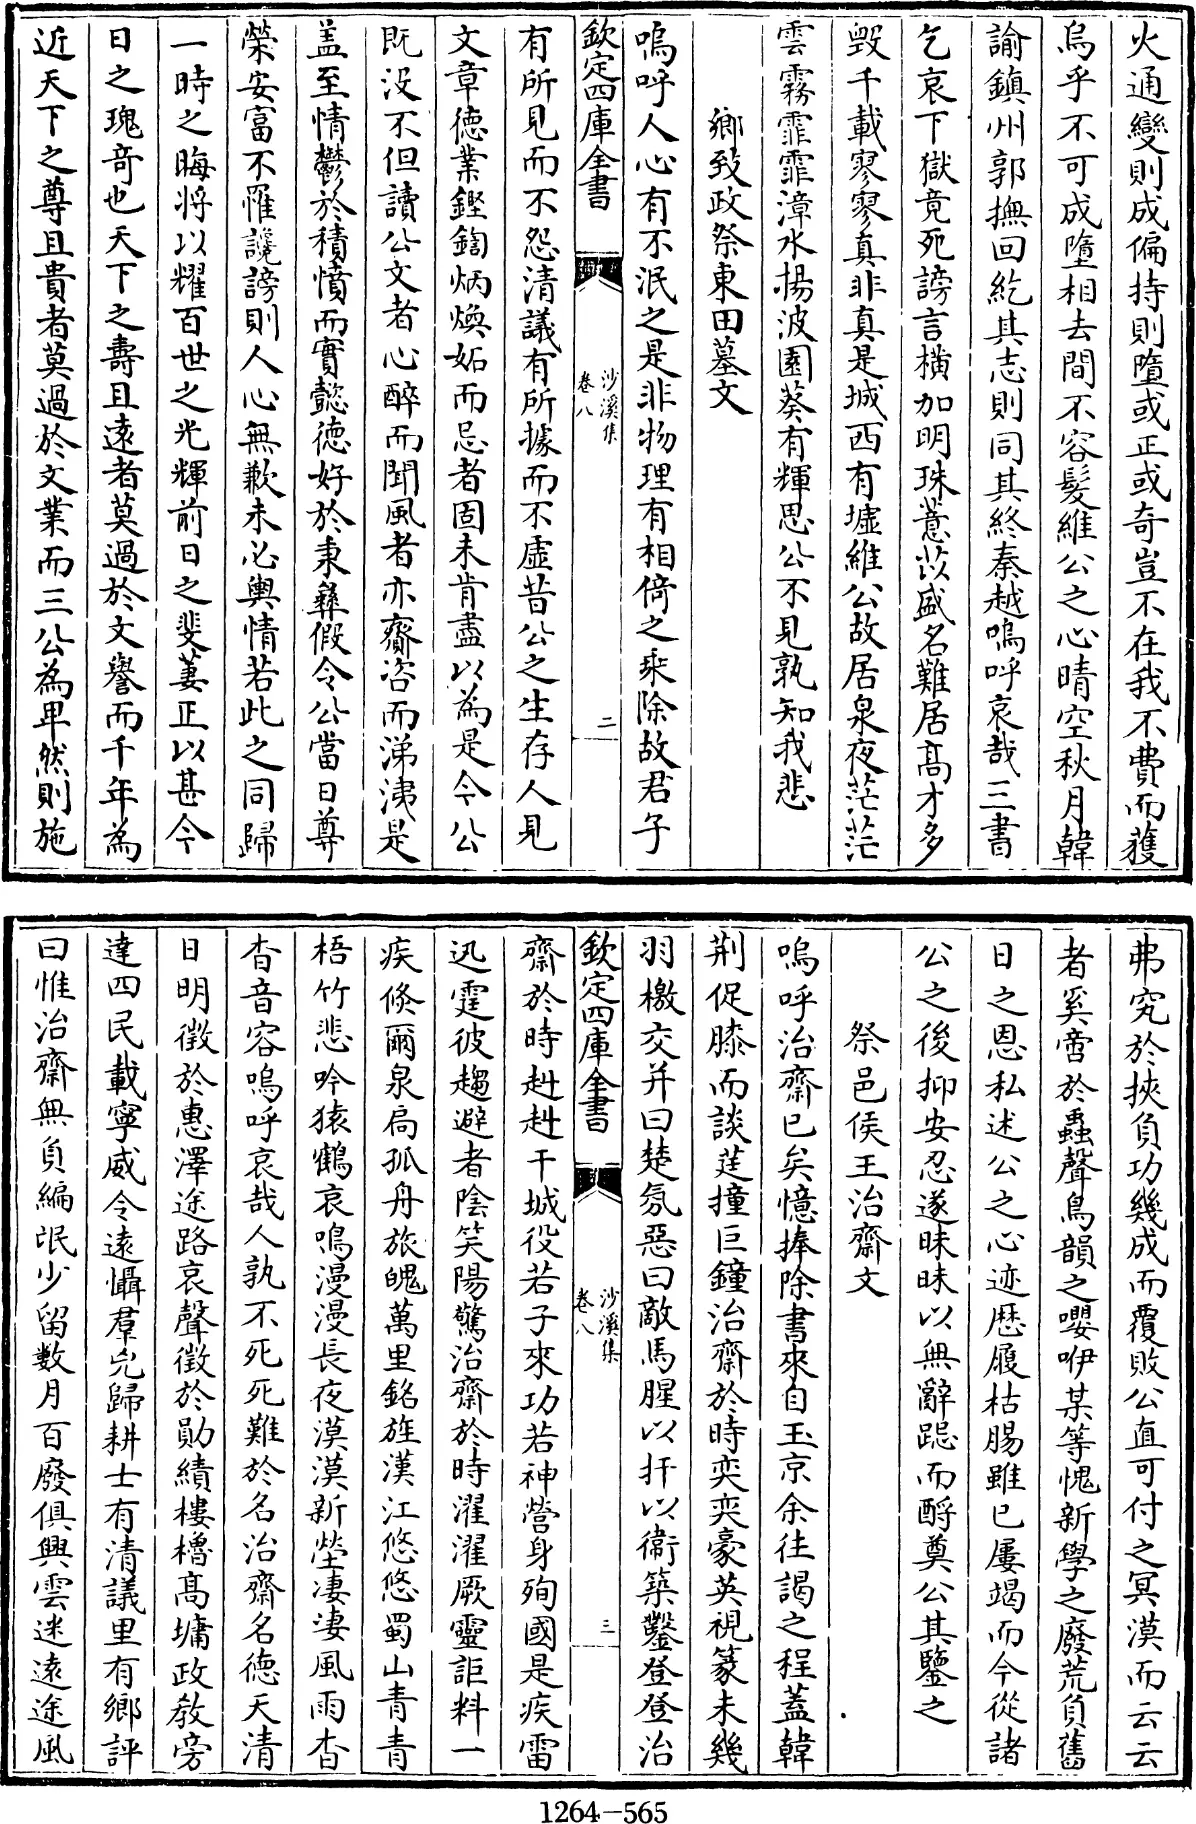 火通變則成偏持則墮或正或奇豈不在我不費而獲
烏乎不可成墮相去間不容髮維公之心晴空秋月韓
諭鎮州郭撫回紇其志則同其終秦越嗚呼哀哉三書
乞哀下獄竟死謗言横加明珠薏苡盛名難居髙才多
毀千載寥寥真非真是城西有墟維公故居泉夜茫茫
雲霧霏霏漳水揚波園葵有輝思公不見孰知我悲
鄉致政祭東田墓文
嗚呼人心有不泯之是非物理有相倚之乘除故君子
欽定四庫全書
沙溪集
卷八
二
有所見而不怨清議有所據而不虛昔公之生存人見
文章德業鏗鍧炳煥妬而忌者固未肯盡以為是今公
既没不但讀公文者心醉而聞風者亦齎咨而涕洟是
盖至情鬱於積憤而實懿德好於秉彝假令公當日尊
榮安富不罹讒謗則人心無歉未必輿情若此之同歸
一時之晦将以耀百世之光輝前日之斐萋正以甚今
日之瑰竒也天下之壽且逺者莫過於文譽而千年為
近天下之尊且貴者莫過於文業而三公為卑然則施
弗究於挾負功幾成而覆敗公直可付之冥漠而云云
者奚啻於蟲聲鳥韻之嚶咿某等愧新學之廢荒負舊
日之恩私述公之心迹歴履枯腸雖已屢竭而今從諸
公之後抑安忍遂昧昧以無辭跽而酹奠公其鑒之
祭邑侯王治齋文
嗚呼治齋已矣憶捧除書來自玉京余往謁之程蓋韓
荆促膝而談莛撞巨鐘治齋於時奕奕豪英視篆未幾
羽檄交并曰楚氛惡曰敵馬腥以扞以衞築鑿登登治
欽定四庫全書
沙溪集
卷八
三
齋於時赳赳干城役若子來功若神營身殉國是疾雷
迅霆彼趨避者陰笑陽驚治齋於時濯濯厥靈詎料一
疾倐爾泉扃孤舟旅魄萬里銘旌漢江悠悠蜀山青青
梧竹悲吟猿鶴哀鳴漫漫長夜漠漠新塋凄凄風雨杳
杳音容嗚呼哀哉人孰不死死難於名治齋名德天清
日明徵於惠澤途路哀聲徵於勛績樓櫓髙墉政敎旁
達四民載寧威令逺懾羣兇歸耕士有清議里有鄉評
曰惟治齋無負編氓少留數月百廢俱興雲迷逺途風
1264—565